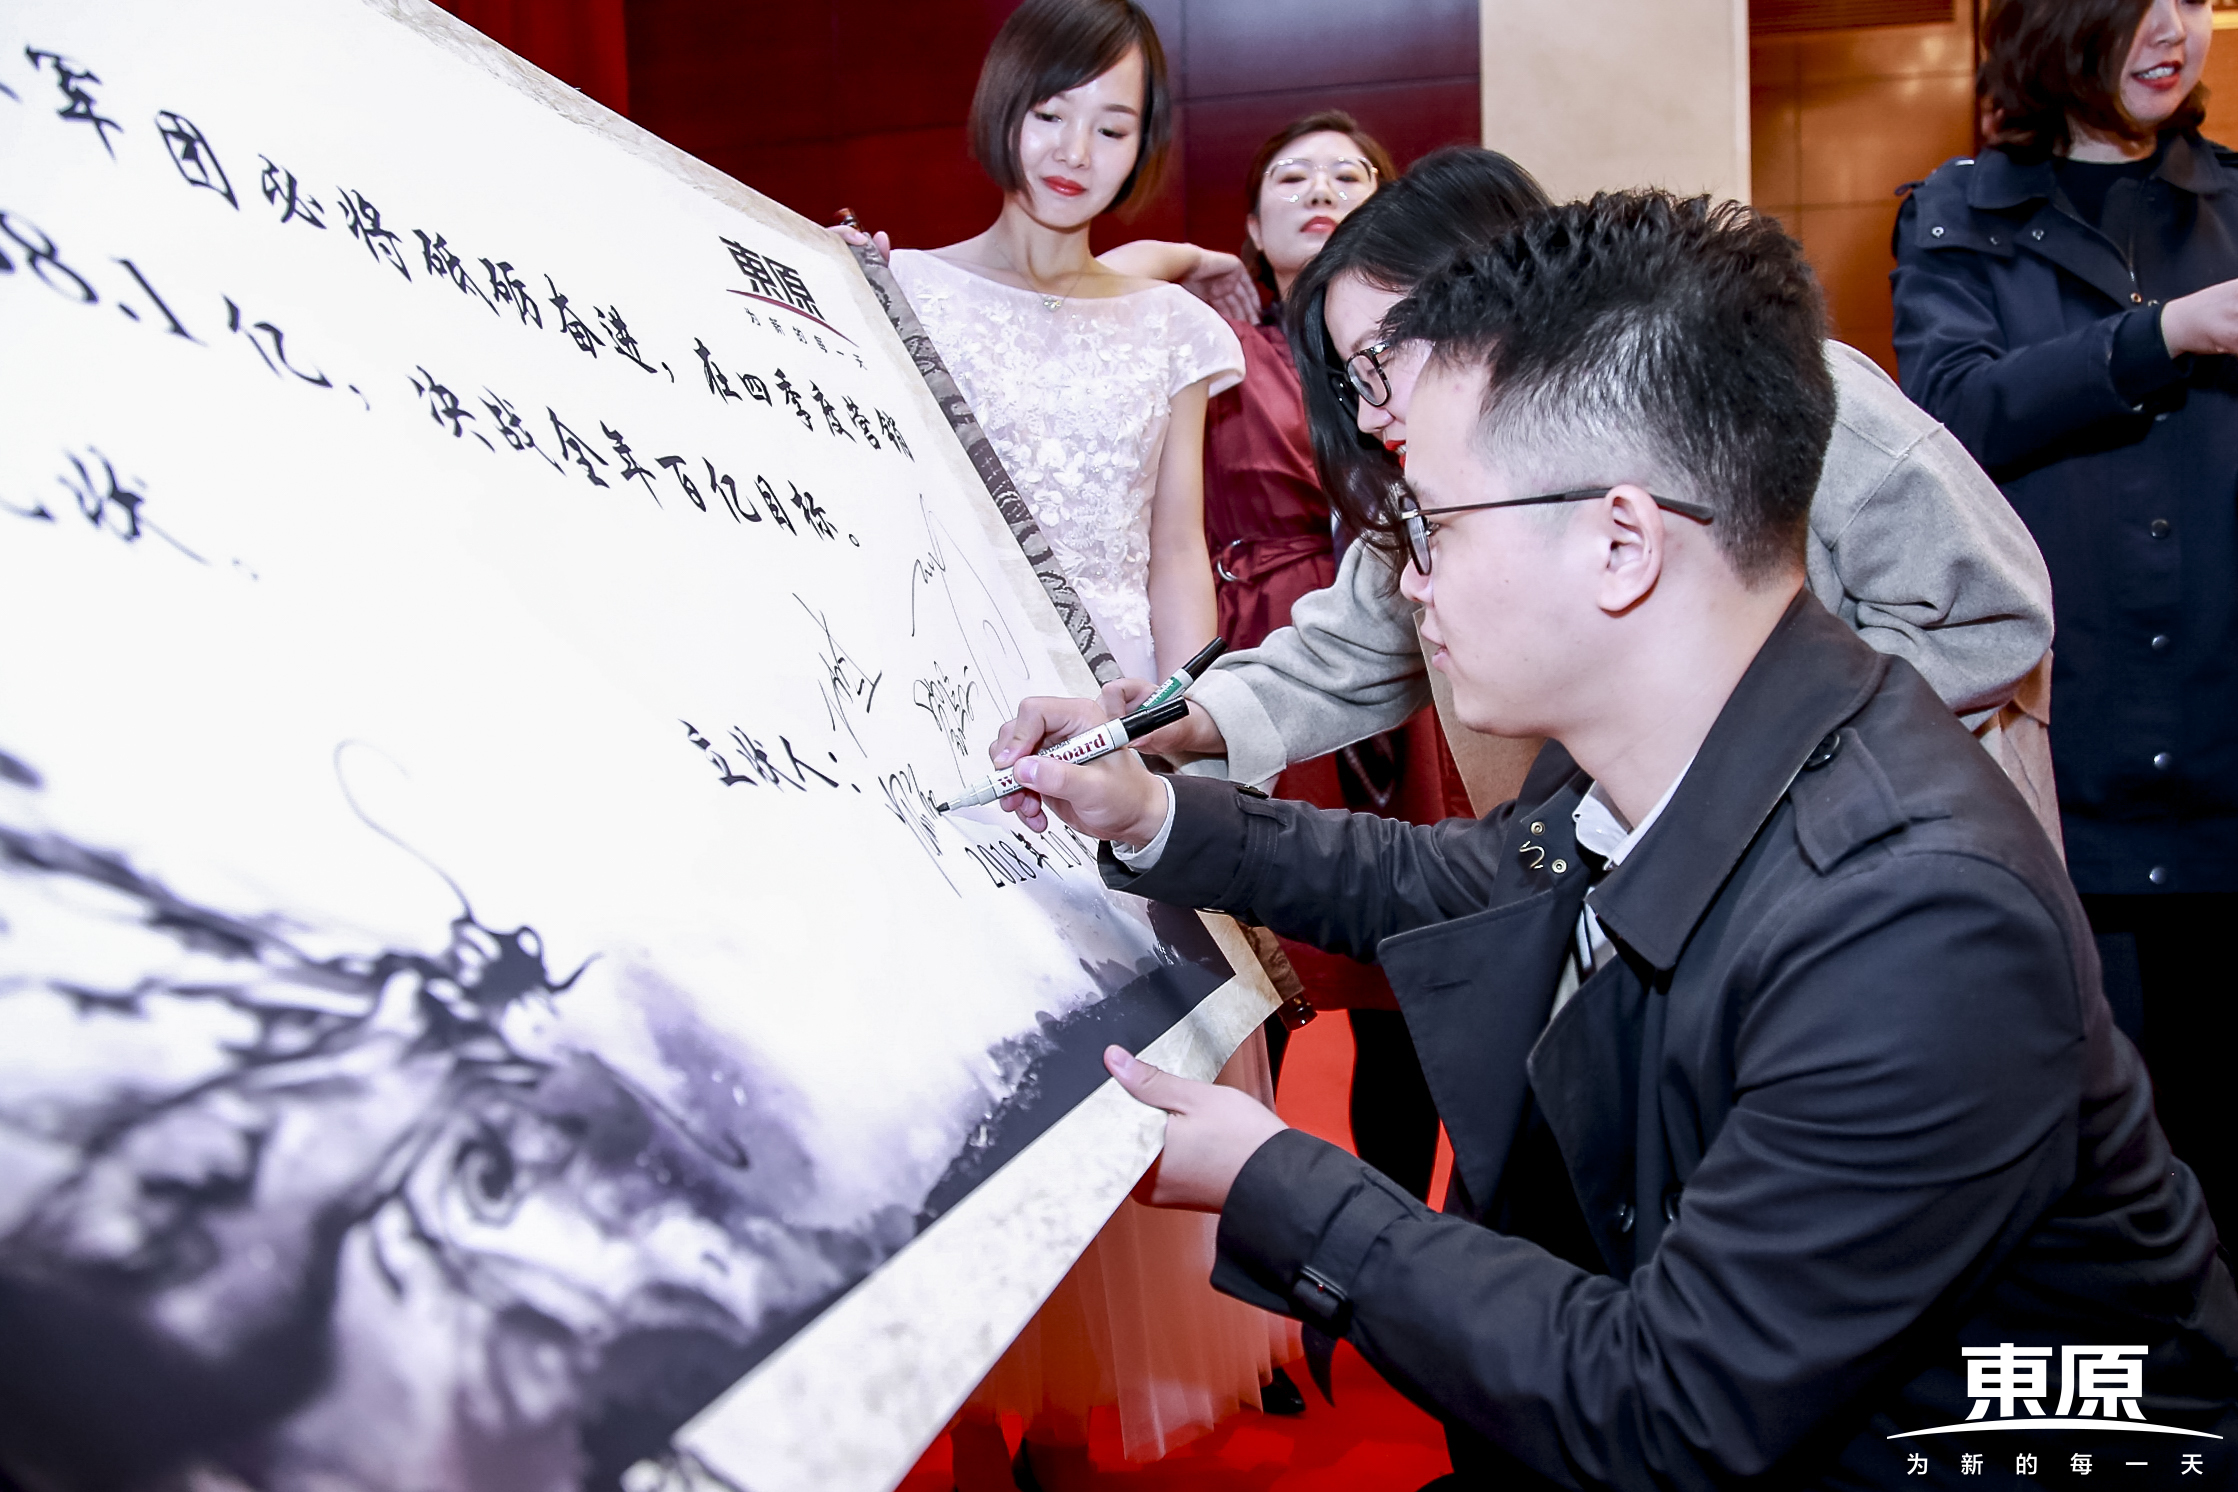 東原
为新的每一天
军团必将砥砺奋进，在四季度营销
8.1亿，决战全年百亿目标。
状。
立状人：
2018年10月
board
東原
为新的每一天